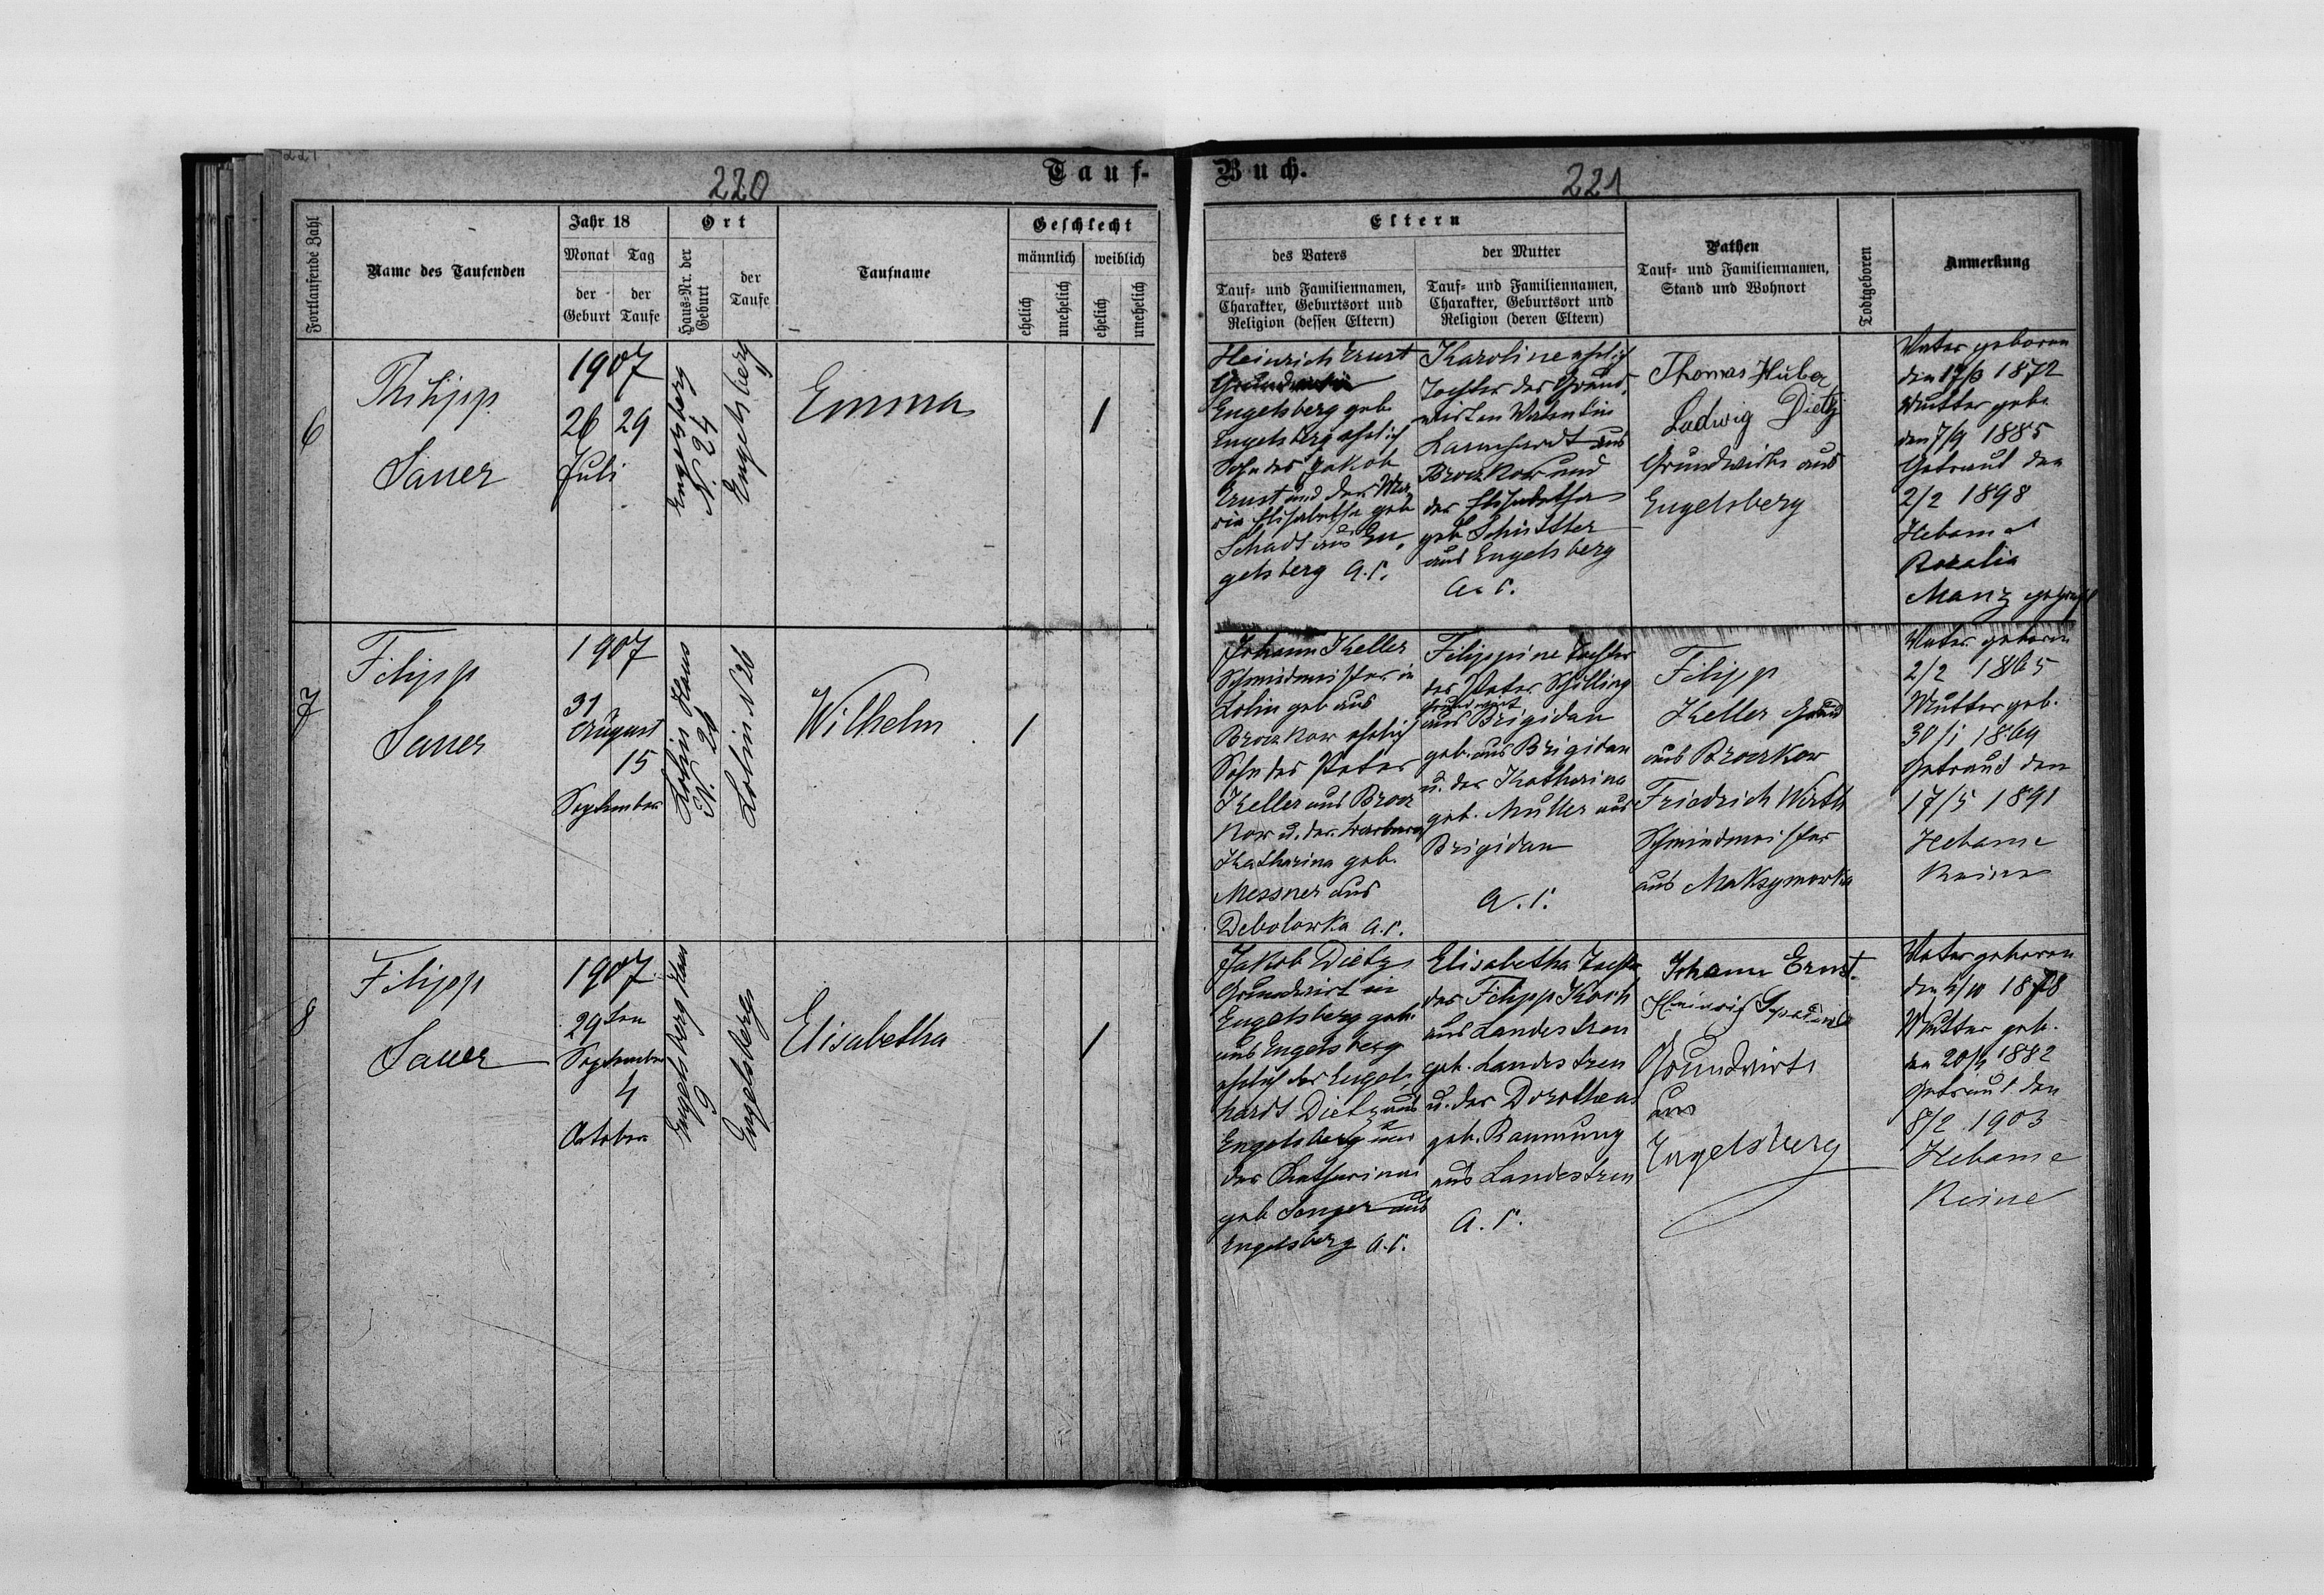 221
220
Tauf-
Fortlaufende Zahl
Name des Taufenden
Jahr 18
Monat
Tag
der Geburt
der Taufe
Ort
Haus-Nr. der Geburt
der Taufe
Taufname
Geschlecht
männlich
weiblich
ehelich
unehelich
ehelich
unehelich
6
Philipp
Sauer
1907
26 29
Juli
Engelsberg
N. 24
Engelsberg
Emma
1
7
Filipp
Sauer
1907
31
August
15
September
Lolin Haus
N. 26
Lolin N 26
Wilhelm
1
8
Filipp
Sauer
1907
29ten
September
4
October
Engelsberg Haus
9
Engelsberg
Elisabetha
1
Buch.
221
Eltern
des Vaters
Tauf- und Familiennamen,
Charakter, Geburtsort und
Religion (dessen Eltern)
der Mutter
Tauf- und Familiennamen,
Charakter, Geburtsort und
Religion (deren Eltern)
Pathen
Tauf- und Familiennamen,
Stand und Wohnort
Todtgeboren
Anmerkung
Heinrich Ernst
Engelsberg geb.
Engelsberg ehelich
Sohn des Jakob
Ernst und der Ma
ria Elisabetha geb
Schadt aus En-
gelsberg A. C.
Karoline ehelich
Tochter des Grund-
wirten Valentin
aus
Broczkow und
der Elisabetha
geb Schüttler
aus Engelsberg
A. C.
Thomas Huber
Ludwig Dietz
Grundwirte aus
Engelsberg
Vater geboren
den 1872
Mutter geb.
den 7/9 1885
Getraut den
2/2 1898
Hebame
Rozalia
Manz geprüft
Johann Keller
Schmidmeister in
Lolin geb aus
Broczkow ehelich
Sohn des Peter
Keller aus Brocz
kow u. der Barbara
Katharina geb.
Messner aus
Debolowka A. C.
Filippine Tochter
des Peter Schilling
Grundwirt
aus Brigidau
geb. aus Brigidau
u. der Katharina
geb. Müller aus
Brigidau
A. C.
Filipp
Keller Grund
aus Broczkow
Friedrich Wirth
Schmiedmeister
aus Maksymowka
Vater geboren
2/2 1865
Mutter geb.
30/1 1869
Getraut den
17/5 1891
Hebame
Keine
Jakob Dietz
Grundwirt in
Engelsberg geb.
aus Engelsberg
ehelich des Engel-
hardt Dietz aus
Engelsberg und
der Katharina
geb Senger aus
Engelsberg A. C.
Elisabetha Tochter
des Filipp Koch
aus Landestreu
geb. Landestreu
u. der Dorothea
geb.
aus Landestreu
A. C.
Johann Ernst.
Heinrich
Grundwirte
aus
Engelsberg
Vater geboren
den 1878
Mutter geb.
den 1882
Getraut den
8/2 1903
Hebame
Keine